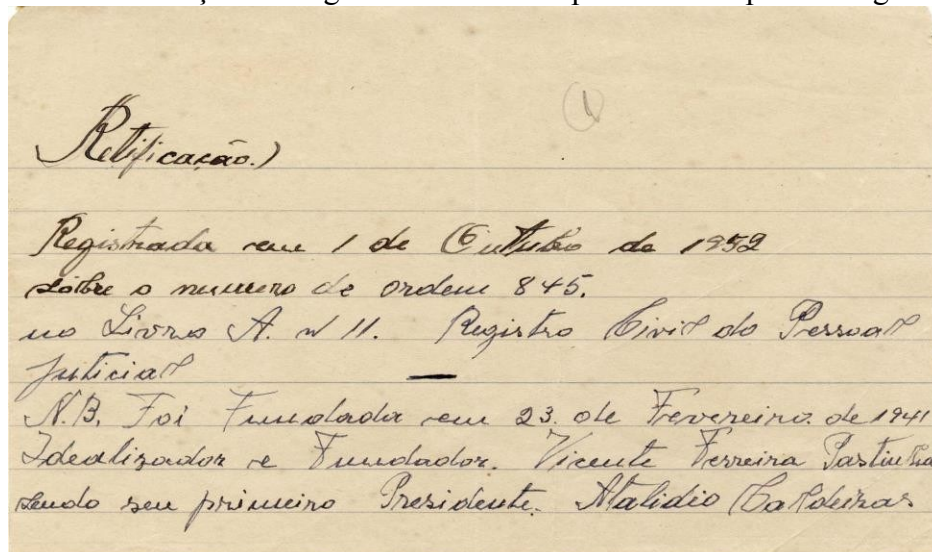 ①
Retificação.)
Registrada em 1 de Outubro de 1952
sôbre o numero de ordem 845.
no Livro A. nº 11. Registro Civil do Pessoal
Juticial
N.B. Foi Fundada em 23. de Fevereiro. de 1941
Idealizador e Fundador. Vicente Ferreira
sendo seu primeiro Presidente. Atalidio Caldeiras